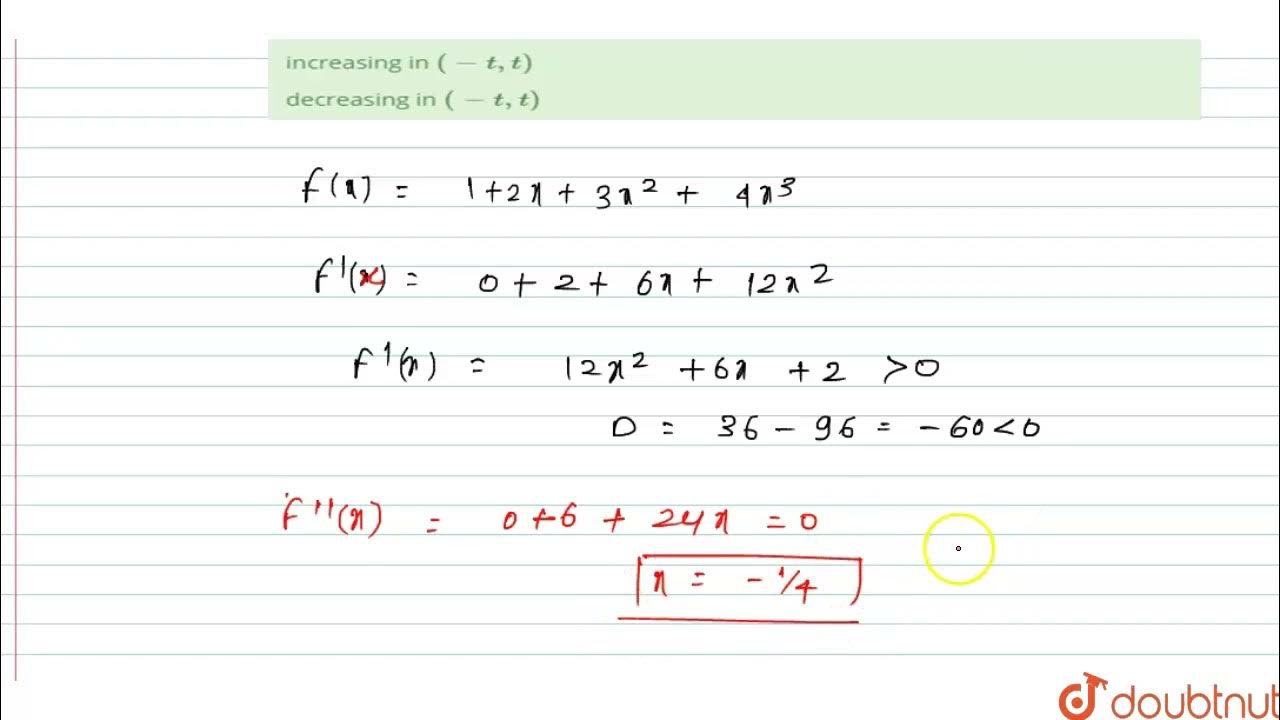 increasing in (−t, t)
decreasing in (−t, t)
f(x) = 1+2x+3x²+ 4x³
f'(x) = 0+2+6x+12x²
f'(x) = 12x² +6x +2 >0
D = 36-96 = -60<0
f''(x) = 0+6 + 24x =0
x = -1/4
doubtnut